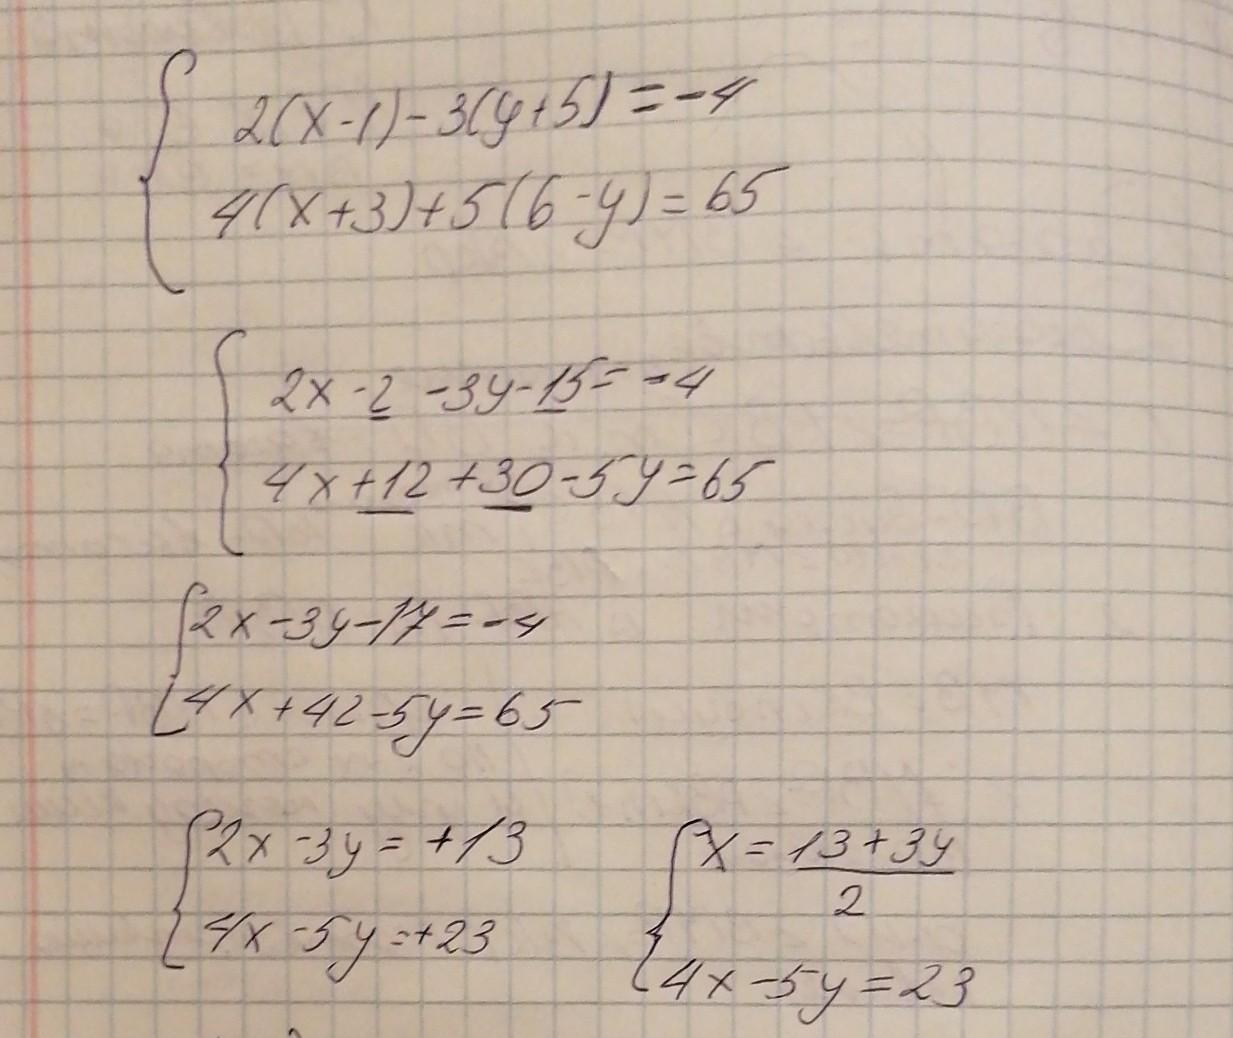 2(x-1)-3(y+5)=-4
4(x+3)+5(6-y)=65
2x-2-3y-15=-4
4x+12+30-5y=65
2x-3y-17=-4
4x+42-5y=65
2x-3y=+13
4x-5y=+23
x=13+3y
2
4x-5y=23